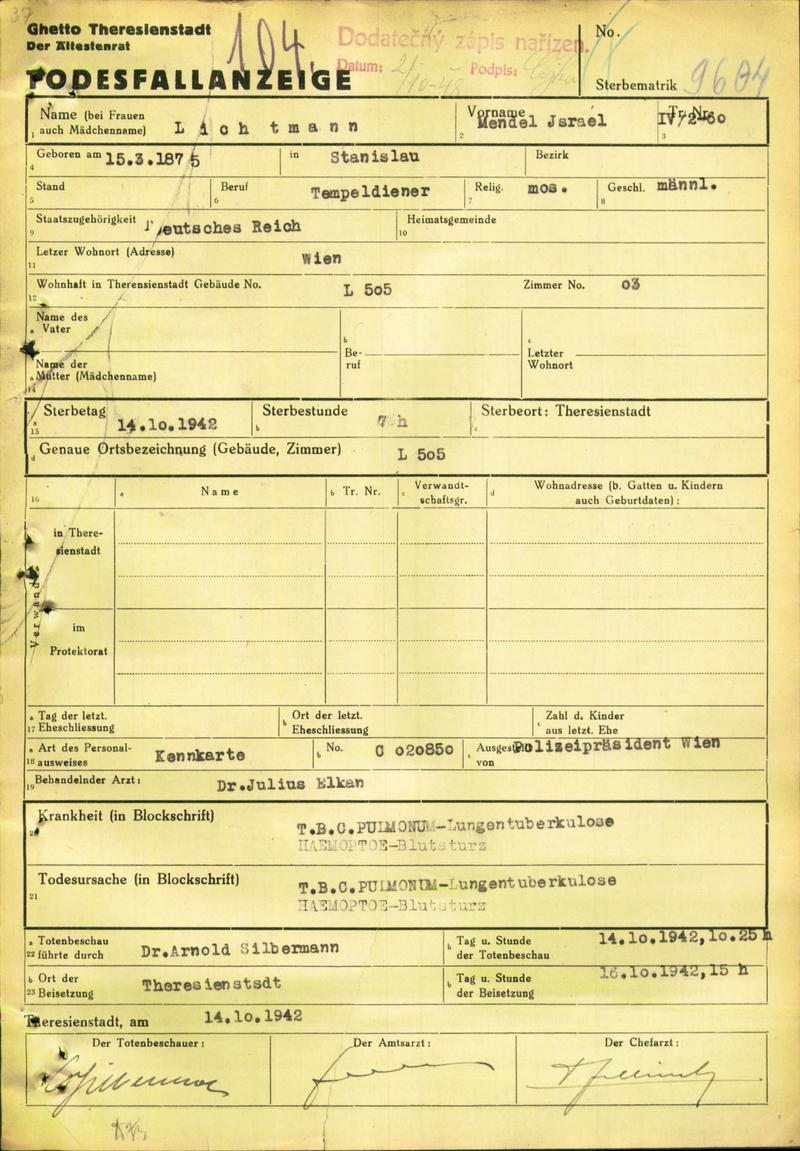 37
Ghetto Theresienstadt
Der Ältestenrat
104.
Dodatečný zápis nařízen.
Datum: 21/10-48 Podpis:
No.
TODESFALLANZEIGE
Sterbematrik 9604
Name (bei Frauen
1 auch Mädchenname) Lichtmann
Vorname
2 Mendel Jsraël
Tr. Nr.
3 IV/2-60
Geboren am 15.3.1875
4
in Stanislau
Bezirk
Stand
5
Beruf
6 Tempeldiener
Relig.
7 mos.
Geschl.
8 männl.
Staatszugehörigkeit
9 Deutsches Reich
Heimatsgemeinde
10
Letzer Wohnort (Adresse)
11 Wien
Wohnhaft in Therensienstadt Gebäude No. L 505 Zimmer No. 03
12
Name des
a Vater
b
Be-
ruf
c
Letzter
Wohnort
Name der
a Mutter (Mädchenname)
14
Sterbetag
a
15 14.10.1942
Sterbestunde
b 7 h
Sterbeort: Theresienstadt
c
d Genaue Ortsbezeichnung (Gebäude, Zimmer) L 505
16
a Name
b Tr. Nr.
c Verwandt-
schaftsgr.
d Wohnadresse (b. Gatten u. Kindern
auch Geburtdaten) :
in There-
sienstadt
im
Protektorat
a Tag der letzt.
17 Eheschliessung
b Ort der letzt.
Eheschliessung
c Zahl d. Kinder
aus letzt. Ehe
a Art des Personal-
18 ausweises Kennkarte
b No. C 020850
c Ausgest.
von Polizeipräsident Wien
19 Behandelnder Arzt: Dr.Julius Elkan
Krankheit (in Blockschrift)
20
T.B.C.PULMONUM-Lungentuberkulose
HAEMOPTOE-Blutsturz
Todesursache (in Blockschrift)
21
T.B.C.PULMONUM-Lungentuberkulose
HAEMOPTOE-Blutsturz
a Totenbeschau
22 führte durch Dr.Arnold Silbermann
b Tag u. Stunde
der Totenbeschau 14.10.1942,10.25 h
b Ort der
23 Beisetzung Theresienstsdt
b Tag u. Stunde
der Beisetzung 16.10.1942,15 h
Theresienstadt, am 14.10.1942
Der Totenbeschauer :
Der Amtsarzt :
Der Chefarzt :